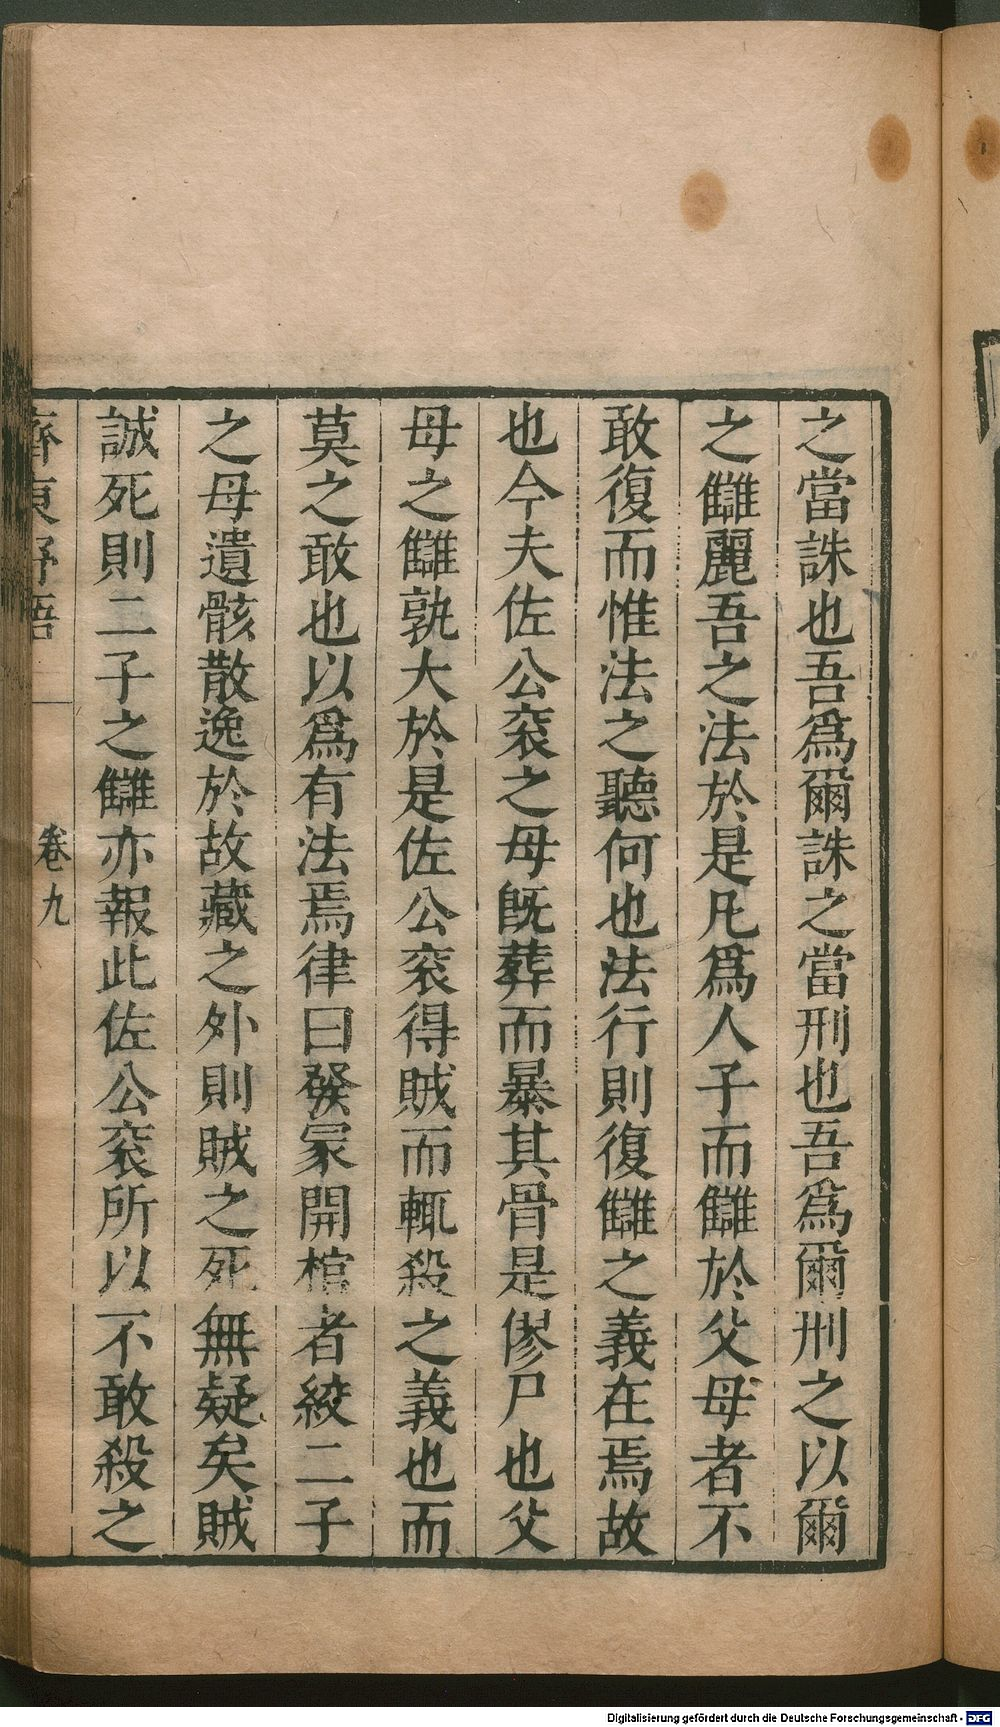 之當誅也吾爲爾誅之當刑也吾爲爾刑之以爾
之讎麗吾之法於是凡爲人子而讎於父母者不
敢復而惟法之聽何也法行則復讎之義在焉故
也今夫佐公衮之母旣葬而暴其骨是僇尸也父
母之讎孰大於是佐公衮得賊而輒殺之義也而
莫之敢也以爲有法焉律曰發冢開棺者絞二子
之母遺骸散逸於故藏之外則賊之死無疑矣賊
誠死則二子之讎亦報此佐公衮所以不敢殺之
齊東野語
卷九
Digitalisierung gefördert durch die Deutsche Forschungsgemeinschaft - DFG